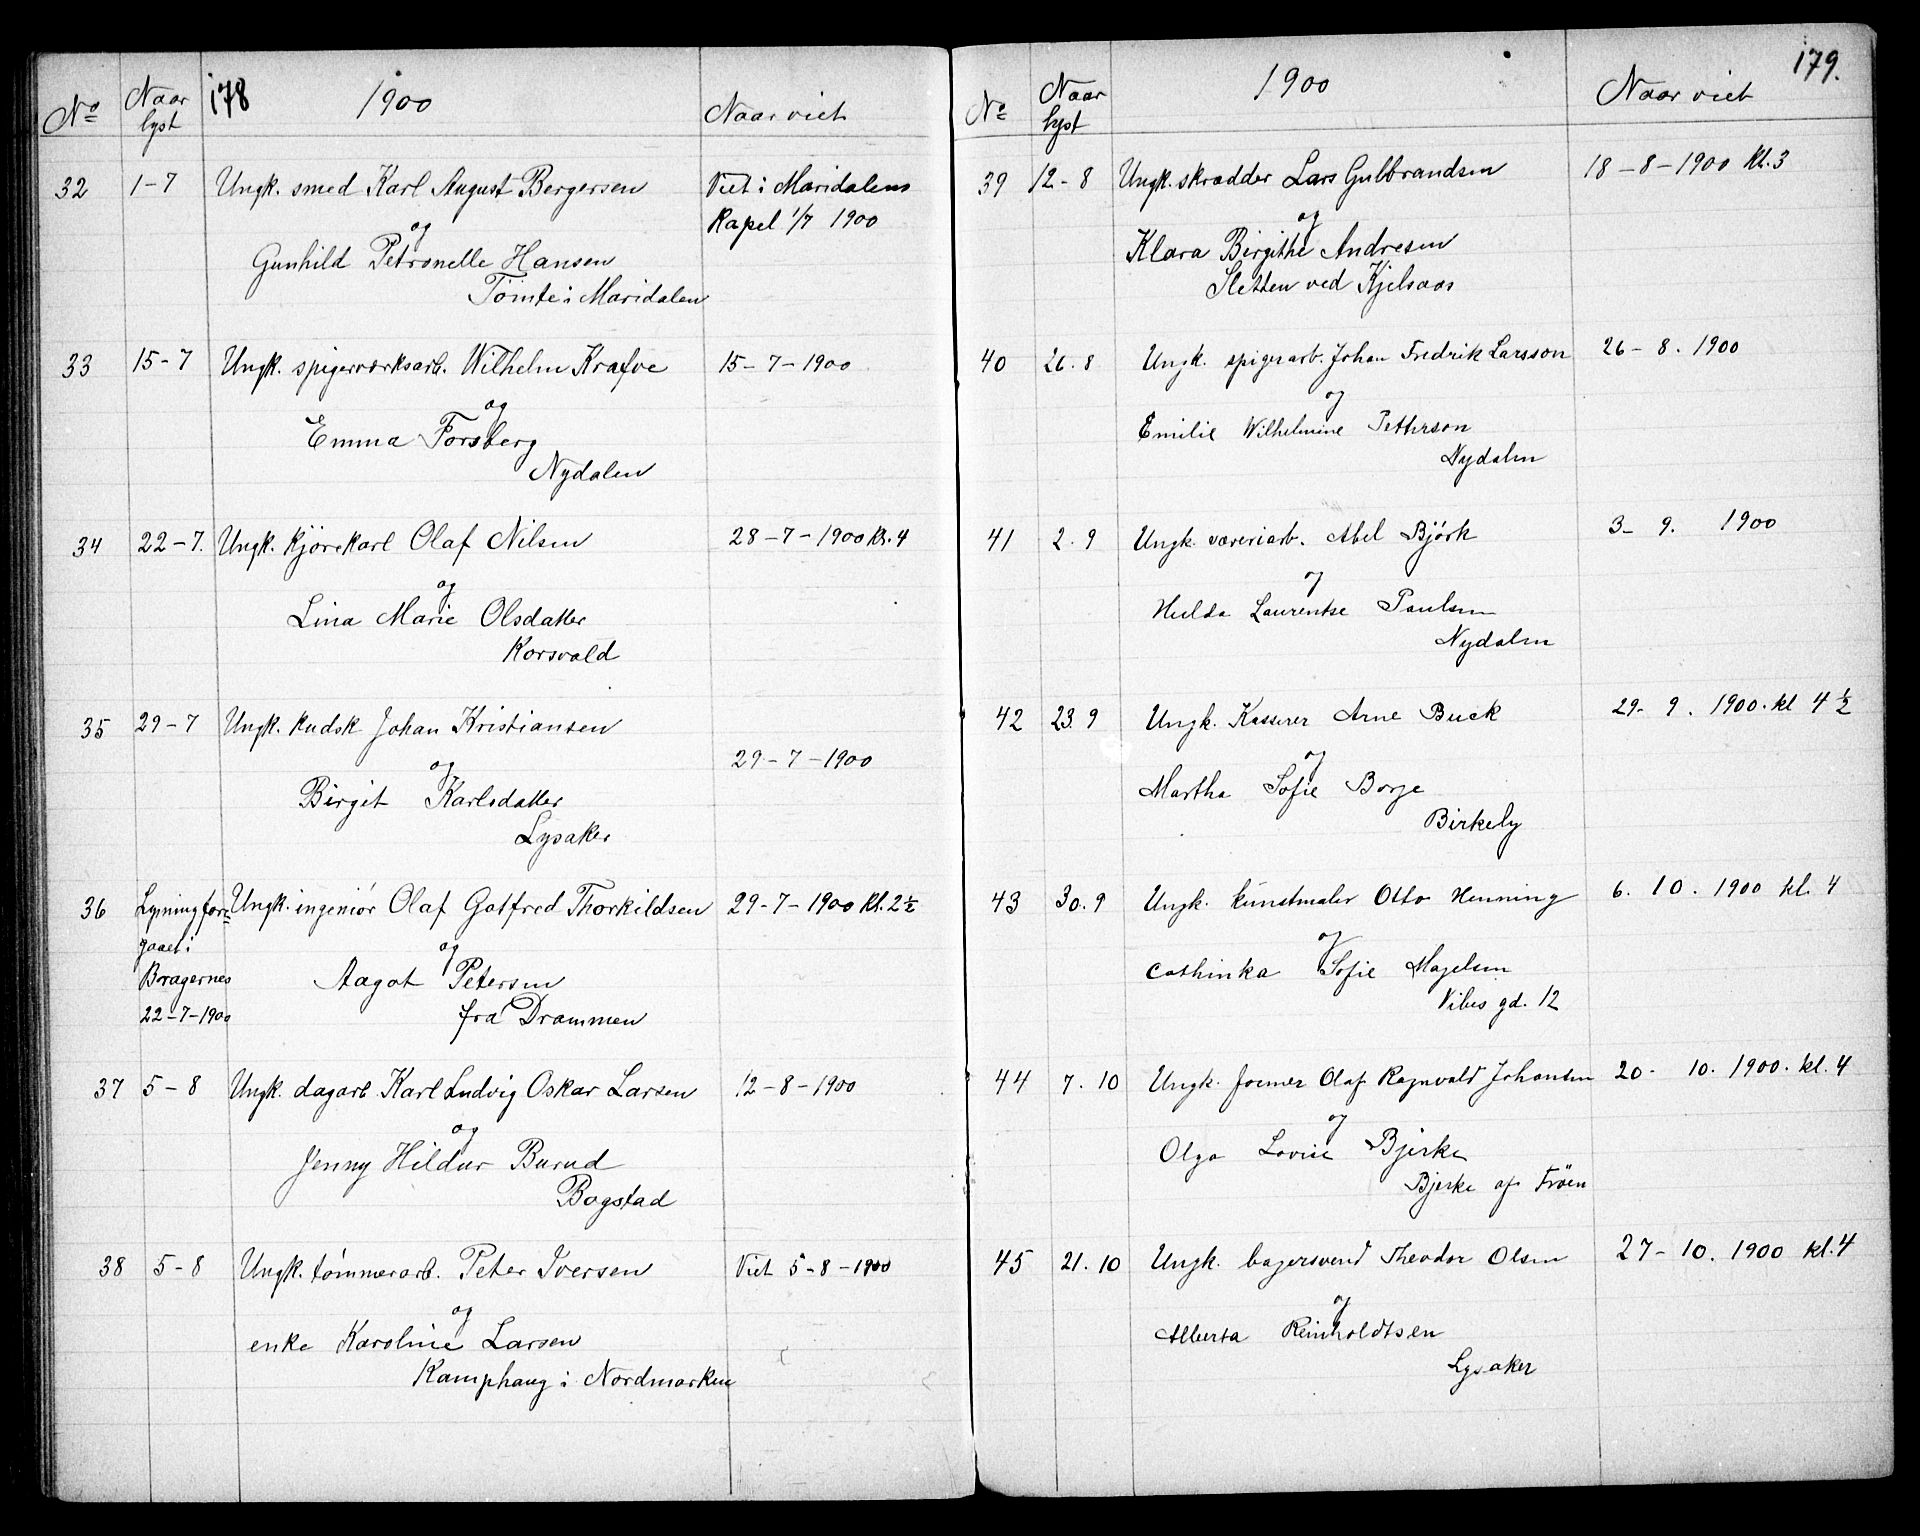 178
1900
No
Naar lyst
Naar viet
32 1-7 Ungk. smed Karl August Bergersen Viet i Maridalens
og Kapel 1/7 1900
Gunhild Petronelle Hansen
Tömte i Maridalen
33 15-7 Ungk. spigerværksarb. Wilhelm Krafve 15-7-1900
og
Emma Forsberg
Nydalen
34 22-7. Ungk. kjørekarl Olaf Nilsen 28-7-1900 Kl. 4
og
Lina Marie Olsdatter
Korsvold
35 29-7 Ungk. kudsk Johan Kristiansen
og 29-7-1900
Birgit Karlsdatter
Lysaker
36 Lysning fore= Ungk. ingeniør Olaf Gotfred Thorkildsen 29-7-1900 Kl. 2½
gaaet i og
Bragernes Aagot Petersen
22-7-1900 fra Drammen
37 5-8 Ungk. dagarb. Karl Ludvig Oskar Larsen 12-8-1900
og
Jenny Hildur Burud
Bogstad
38 5-8 Ungk. tømmerarb. Peter Iversen Viet 5-8-1900
og
enke Karoline Larsen
Kamphaug i Nordmarken
179.
1900
No
Naar lyst
Naar viet
39 12-8 Ungk. skrædder Lars Gulbrandsen 18-8-1900 Kl. 3
og
Klara Birgithe Andresen
Sletten ved Kjelsaas
40 26.8 Ungk. spigerarb. Johan Fredrik Larsson 26-8. 1900
og
Emilie Wilhelmine Petterson
Nydalen
41 2.9 Ungk. væveriarb. Abel Bjørk 3-9. 1900
og
Hulda Laurentse Paulsen
Nydalen
42 23.9 Ungk. Kasserer Arne Buck 29-9. 1900. kl 4½
og
Martha Sofie Borge
Birkely
43 30.9 Ungk. kunstmaler Otto Henning 6. 10. 1900 kl. 4
og
Cathinka Sofie Magelsen
Vibes gd. 12
44 7.10 Ungk. former Olaf Ragnvald Johansen 20- 10. 1900. kl. 4
og
Olga Lovise Bjerke
Bjerke af Frøen
45 21.10 Ungk. bagersvend Theodor Olsen 27-10. 1900 kl. 4
og
Alberta Reinholdtsen
Lysaker